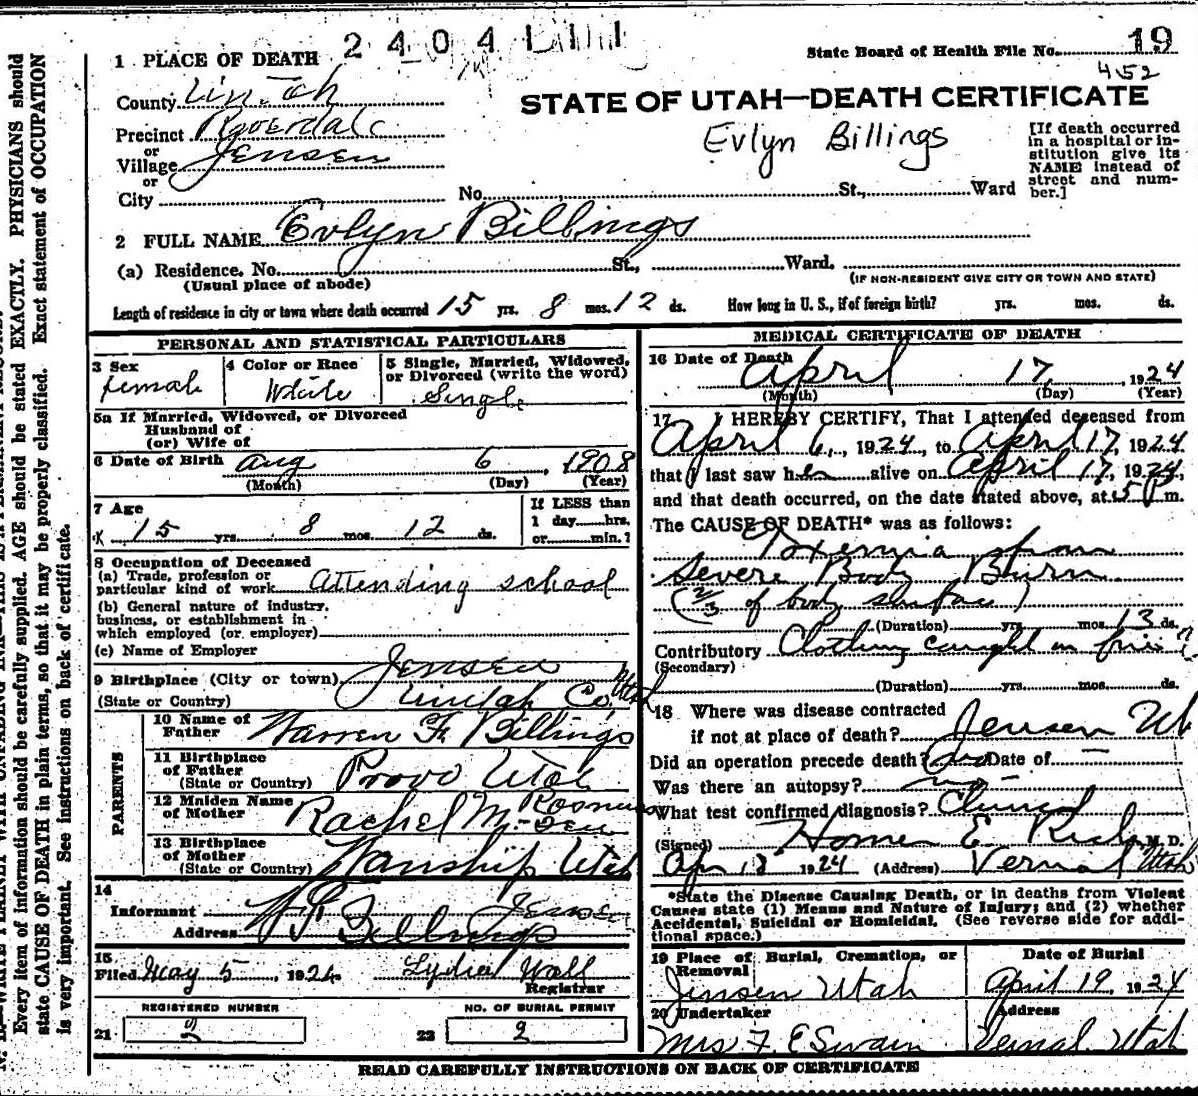 2 4 0 4
State Board of Health File No. 19
452
1 PLACE OF DEATH
STATE OF UTAH—DEATH CERTIFICATE
County Uintah
Precinct Riverdale
or
Village Jensen
or
City
No. St., Ward
Evlyn Billings
[If death occurred
in a hospital or in-
stitution give its
NAME instead of
street and num-
ber.]
2 FULL NAME Evlyn Billings
(a) Residence. No. St., Ward.
(Usual place of abode)
(IF NON-RESIDENT GIVE CITY OR TOWN AND STATE)
Length of residence in city or town where death occurred 15 yrs. 8 mos. 12 ds. How long in U. S., if of foreign birth? yrs. mos. ds.
PERSONAL AND STATISTICAL PARTICULARS
3 Sex
female
4 Color or Race
White
5 Single, Married, Widowed,
or Divorced (write the word)
Single
5a If Married, Widowed, or Divorced
Husband of
(or) Wife of
6 Date of Birth Aug 6, 1908
(Month) (Day) (Year)
7 Age
15 yrs. 8 mos. 12 ds.
If LESS than
1 day......hrs.
or......min.?
8 Occupation of Deceased
(a) Trade, profession or
particular kind of work attending school
(b) General nature of industry,
business, or establishment in
which employed (or employer)
(c) Name of Employer
9 Birthplace (City or town) Jensen
(State or Country) Uintah Co. Utah
PARENTS
10 Name of
Father Warren F. Billings
11 Birthplace
of Father
(State or Country) Provo Utah
12 Maiden Name
of Mother Rachel M.
13 Birthplace
of Mother
(State or Country) Wanship Utah
14
Informant W F Billings
Address Jensen
15
Filed May 5, 1924 Lydia Wall
Registrar
REGISTERED NUMBER
21 2
NO. OF BURIAL PERMIT
22 2
MEDICAL CERTIFICATE OF DEATH
16 Date of Death
April 17, 1924
(Month) (Day) (Year)
17 I HEREBY CERTIFY, That I attended deceased from
April 6, 1924, to April 17, 1924
that I last saw her alive on April 17, 1924,
and that death occurred, on the date stated above, at 5 P m.
The CAUSE OF DEATH* was as follows:
Toxemia from
Severe Body Burn
(2/3 of body surface)
(Duration) yrs. mos. 13 ds.
Contributory Clothing caught on fire
(Secondary)
(Duration) yrs. mos. ds.
18 Where was disease contracted
if not at place of death? Jensen Ut
Did an operation precede death? no Date of —
Was there an autopsy? no
What test confirmed diagnosis? Clinical
(Signed) Homer E. Rich, M. D.
Apr 18, 1924 (Address) Vernal Utah
*State the Disease Causing Death, or in deaths from Violent
Causes state (1) Means and Nature of Injury; and (2) whether
Accidental, Suicidal or Homicidal. (See reverse side for addi-
tional space.)
19 Place of Burial, Cremation, or
Removal
Jensen Utah
Date of Burial
April 19, 1924
20 Undertaker
Mrs F. E Swain
Address
Vernal Utah
READ CAREFULLY INSTRUCTIONS ON BACK OF CERTIFICATE
Every item of information should be carefully supplied. AGE should be stated EXACTLY. PHYSICIANS should
state CAUSE OF DEATH in plain terms, so that it may be properly classified. Exact statement of OCCUPATION
is very important. See instructions on back of certificate.